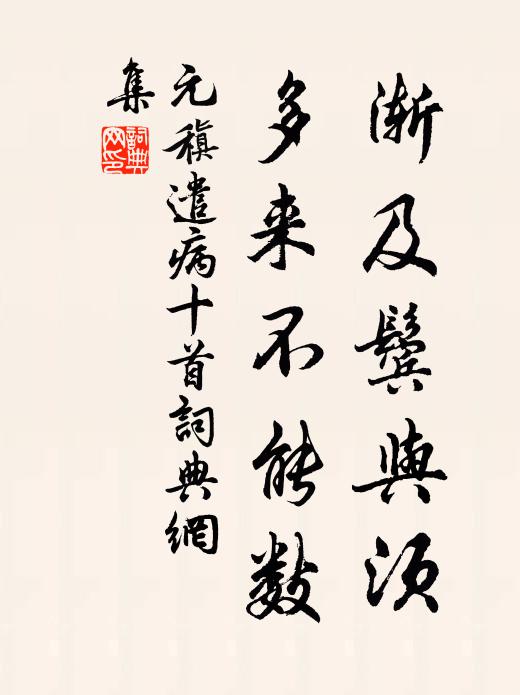 渐及鬓与须
多来不能数
元稹遣病十首詞典網
集
詞典网印